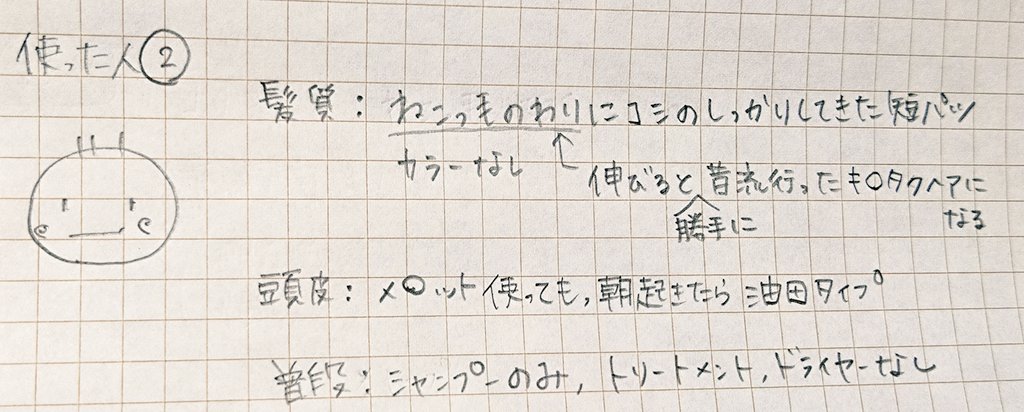 使った人②
髪質：ねこっ毛のわりにコシのしっかりしてきた短パツ
カラーなし
伸びると昔流行ったキ○タクヘアに
勝手に
なる
頭皮：メ○ット使っても、朝起きたら油田タイプ
普段：シャンプーのみ、トリートメント、ドライヤーなし